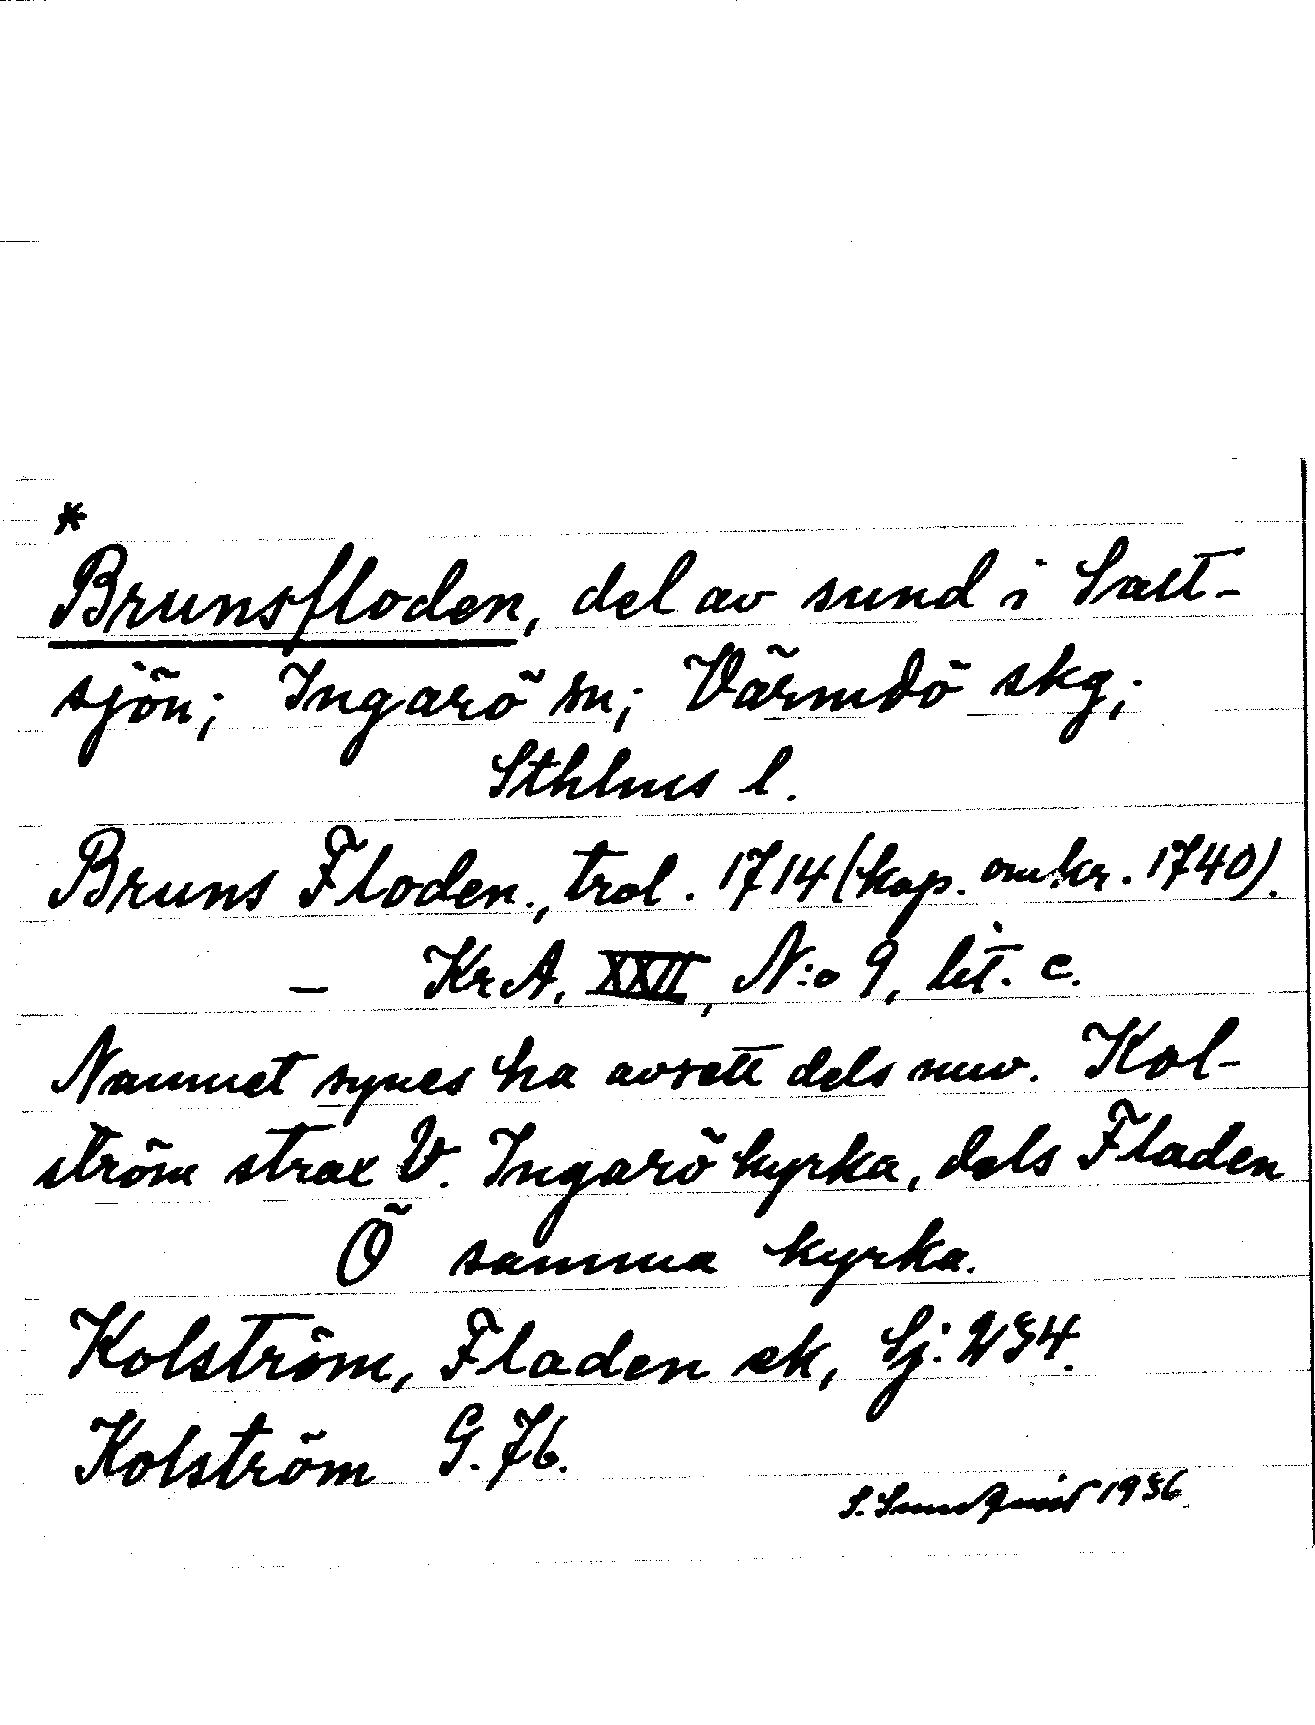 *
Brunsfloden, del av sund i Salt-
sjön; Ingarö sn; Värmdö skg;
Sthlms l.
Bruns Floden., trol. 1714 (kop. omkr. 1740).
— KrA, XXII, N:o 9, lit. c.
Namnet synes ha avsett dels nuv. Kol-
ström strax V. Ingarö kyrka, dels Fladen
Ö samma kyrka.
Kolström, Fladen ek, Sj: 234.
Kolström G. 76.
S. Sundquist 1936